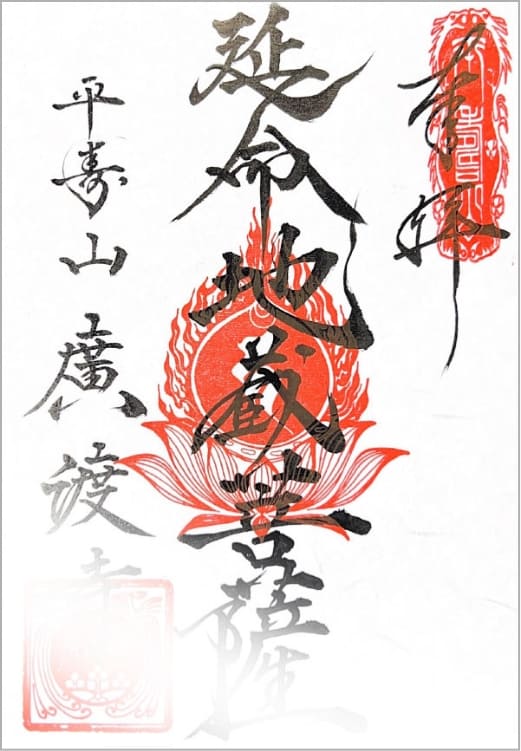 奉拝
延命地蔵菩薩
平寿山廣渡寺